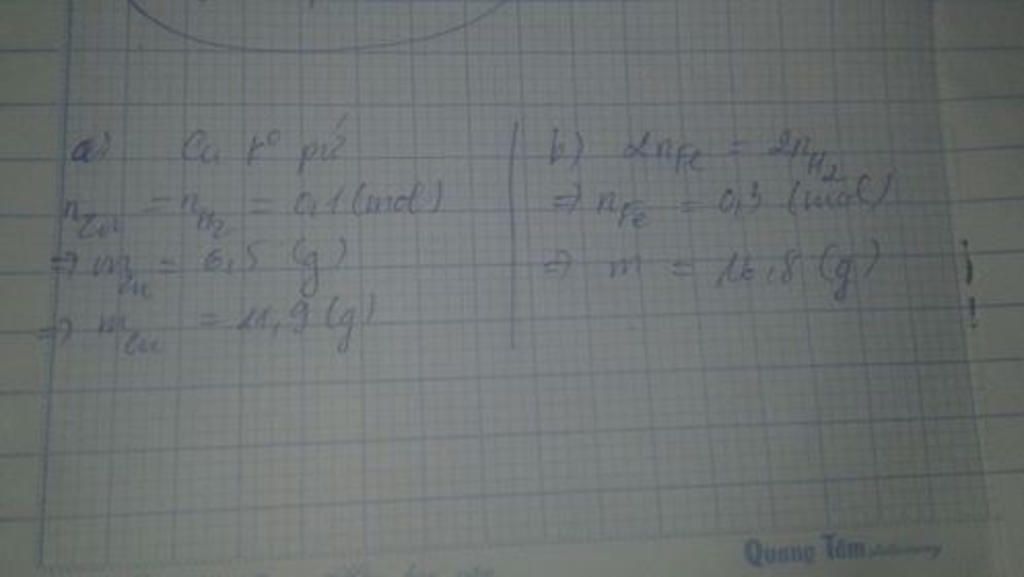 a) Cu k° pứ
n_Zn = n_H2 = 0,1 (mol)
=> m_Zn = 6,5 (g)
=> m_Cu = 11,9 (g)
b) 2n_Fe = 2n_H2
=> n_Fe = 0,3 (mol)
=> m = 16,8 (g)
Quang Tâm